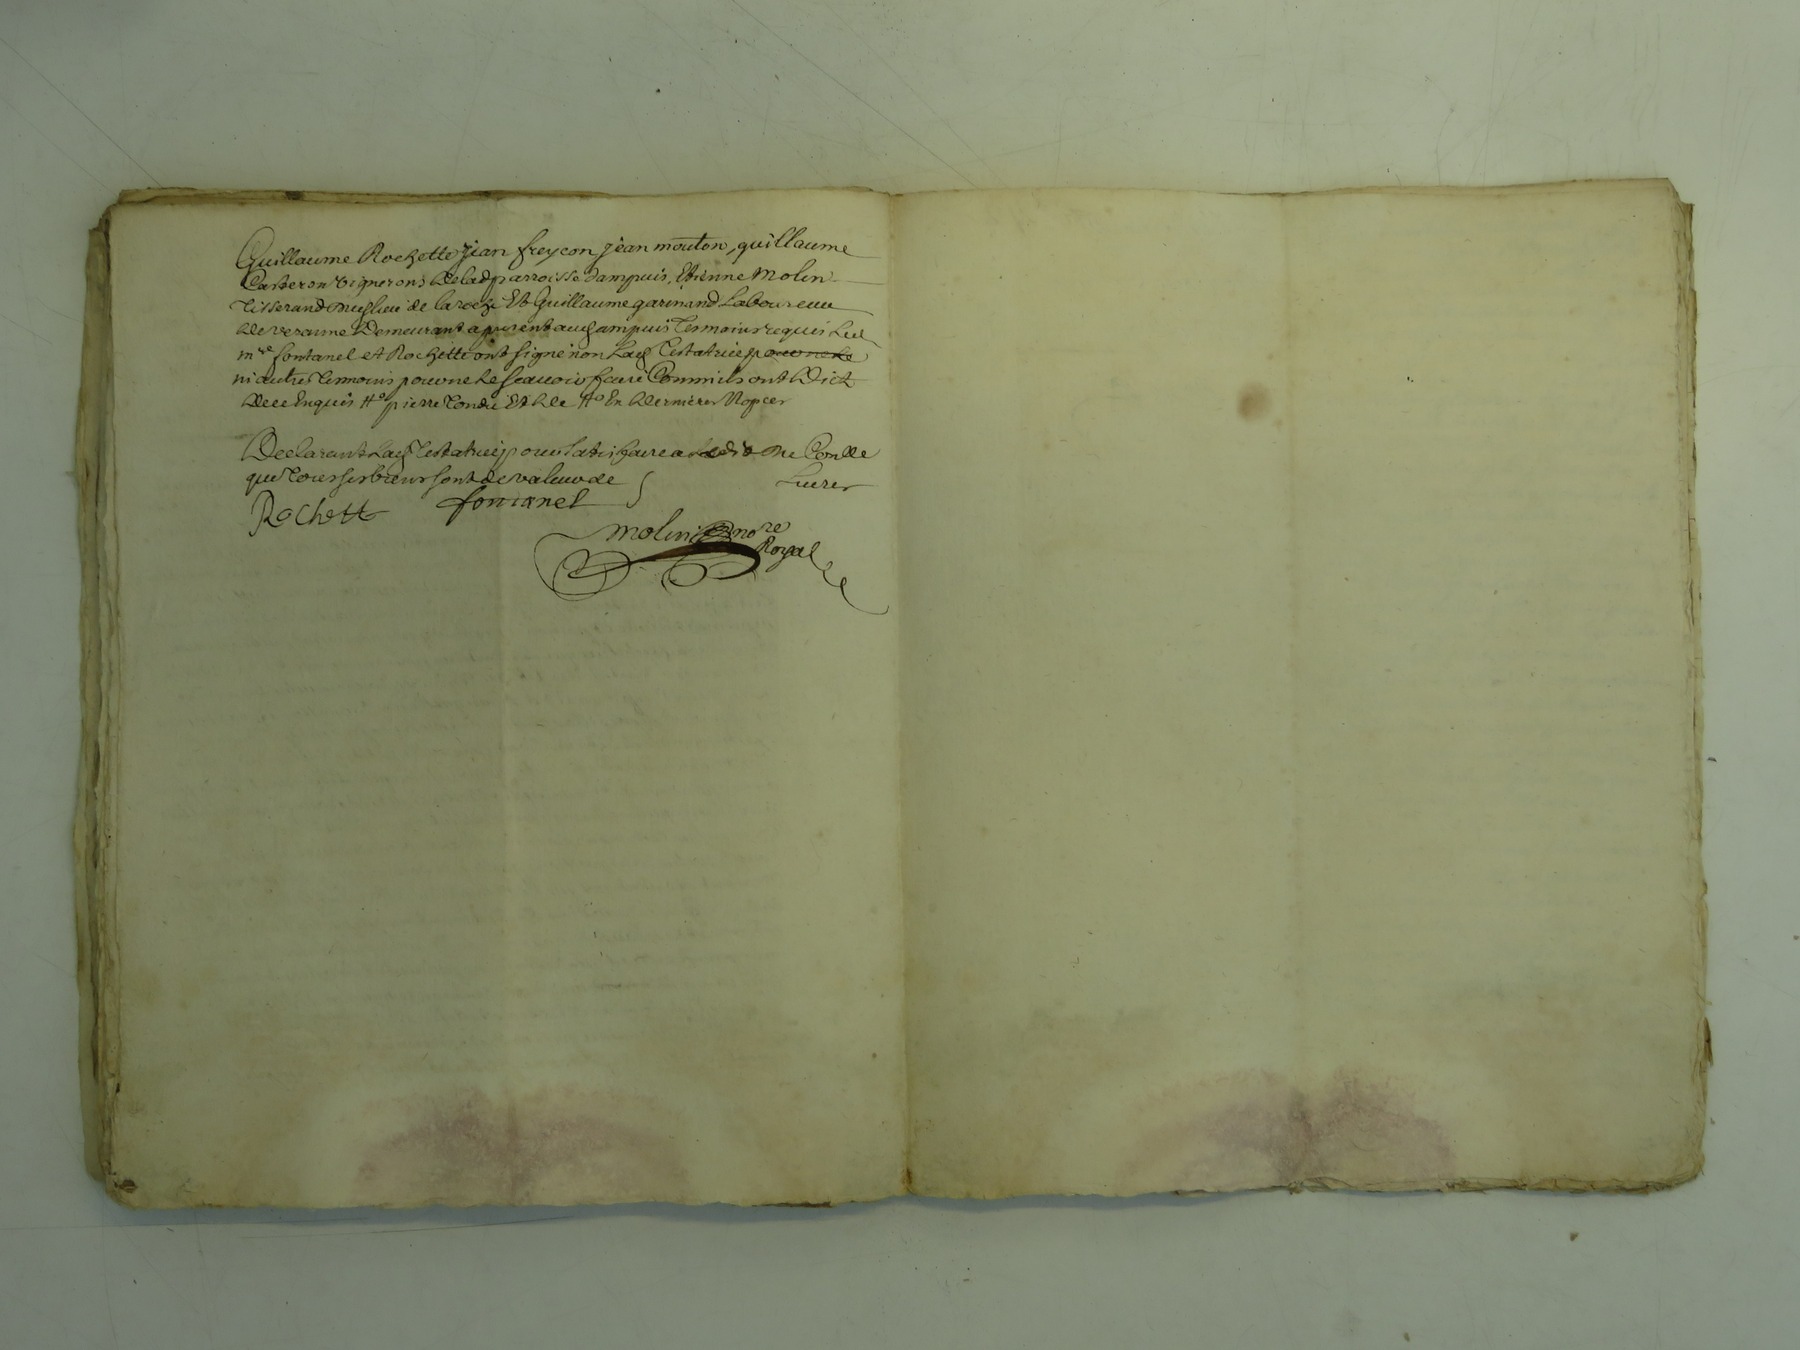 Guillaume Rochette Jean freycon Jean mouton, guillaume
vignerons de lad parroisse dampuis, Etienne Molin
Tisserand du lieu de la roche Et Guillaume garinand Laboureur
de veranne Demeurant a present aud ampuis Tesmoins requis Led
mre fontanel et Rochette ont signé non Lad Testatrice pour ne le
ni autres Tesmoins pour ne le scavoir faire Comm ils ont Dict
de ce Enquis # pierre Et de # En dernieres Nopces
Declarant Lad Testatrice pour satisfaire a Ledit
que Tous ses biens sont de valeur de
Livres
Rochett fontanel
Molin nore
Royal